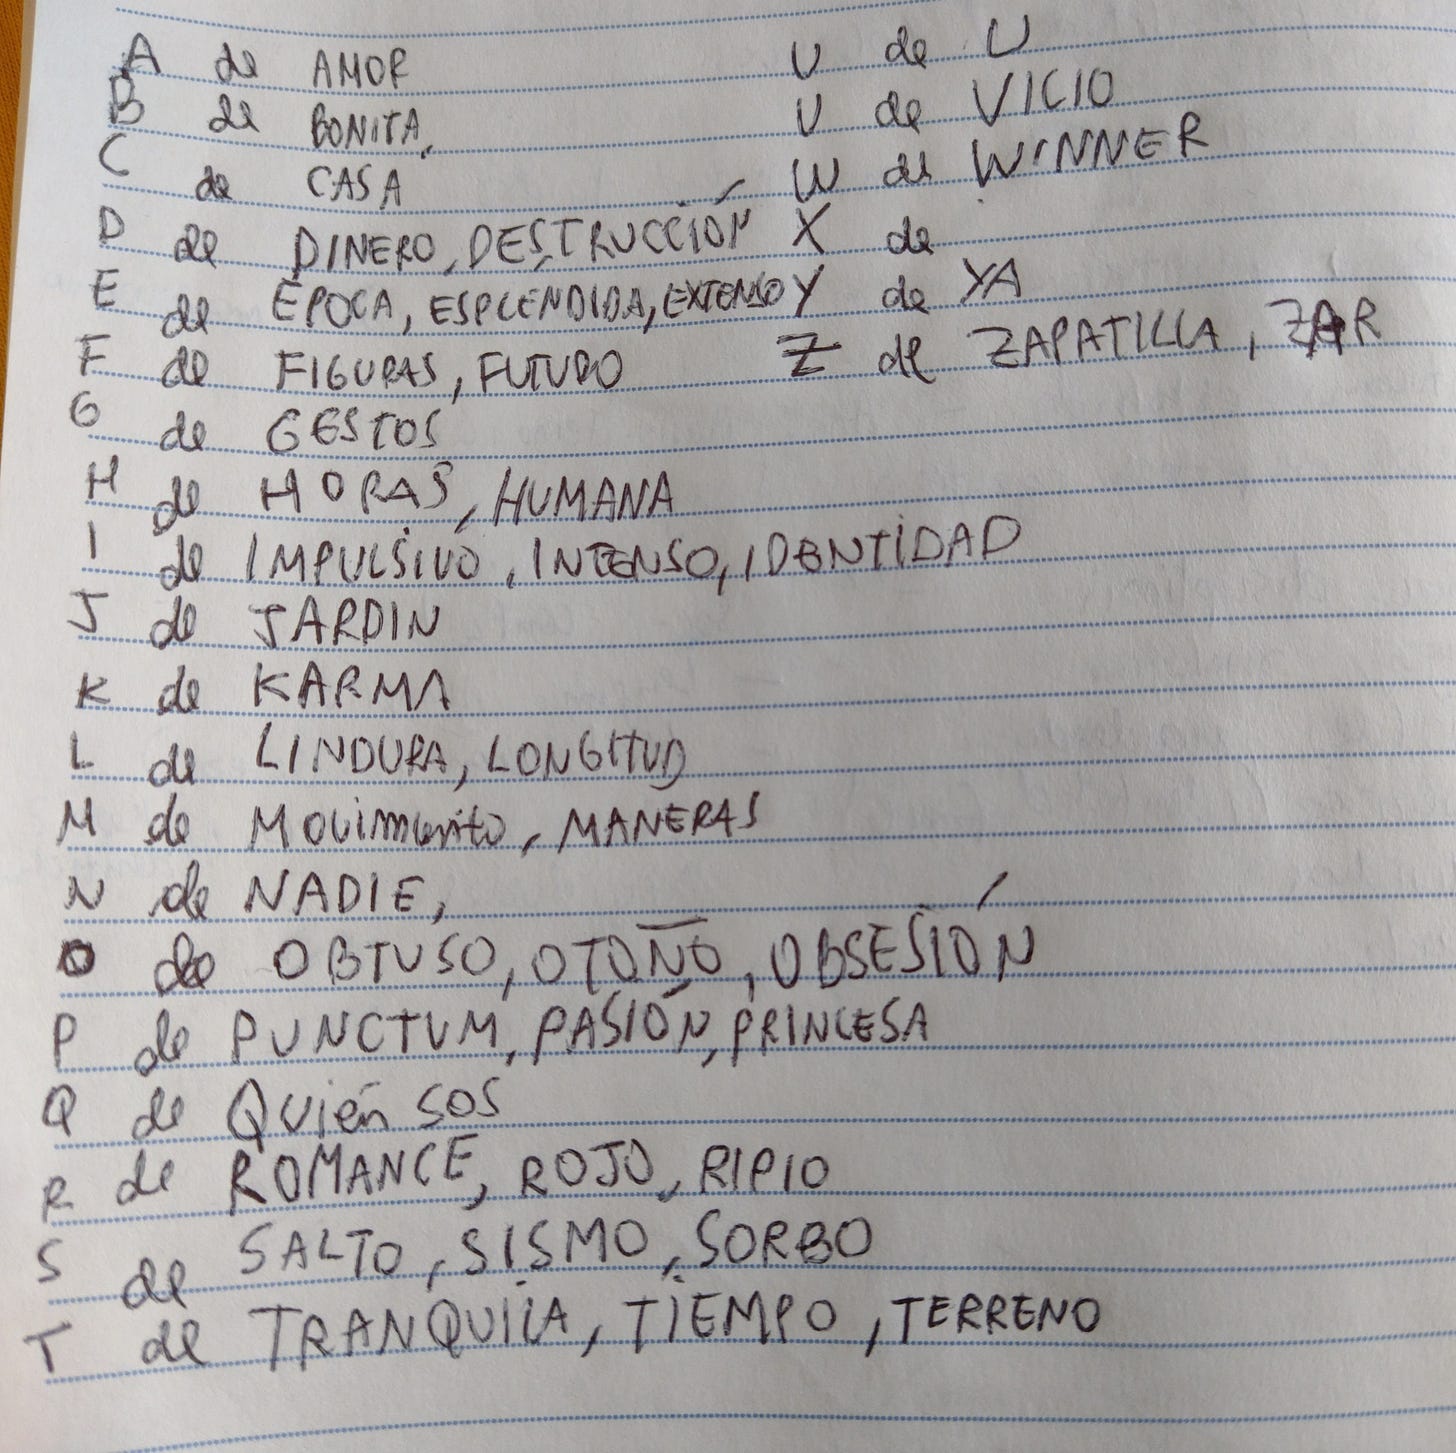 A de AMOR
B de BONITA,
C de CASA
D de DINERO, DESTRUCCIÓN
E de ÉPOCA, ESPLENDIDA, EXTENSO
F de FIGURAS, FUTURO
G de GESTOS
H de HORAS, HUMANA
I de IMPULSIVO, INTENSO, IDENTIDAD
J de JARDIN
K de KARMA
L de LINDURA, LONGITUD
M de Movimiento, MANERAS
N de NADIE,
O de OBTUSO, OTOÑO, OBSESIÓN
P de PUNCTUM, PASIÓN, PRINCESA
Q de Quién SOS
R de ROMANCE, ROJO, RIPIO
S de SALTO, SISMO, SORBO
T de TRANQUILA, TIEMPO, TERRENO
U de U
V de VICIO
W de WINNER
X de
Y de YA
Z de ZAPATILLA, ZAR